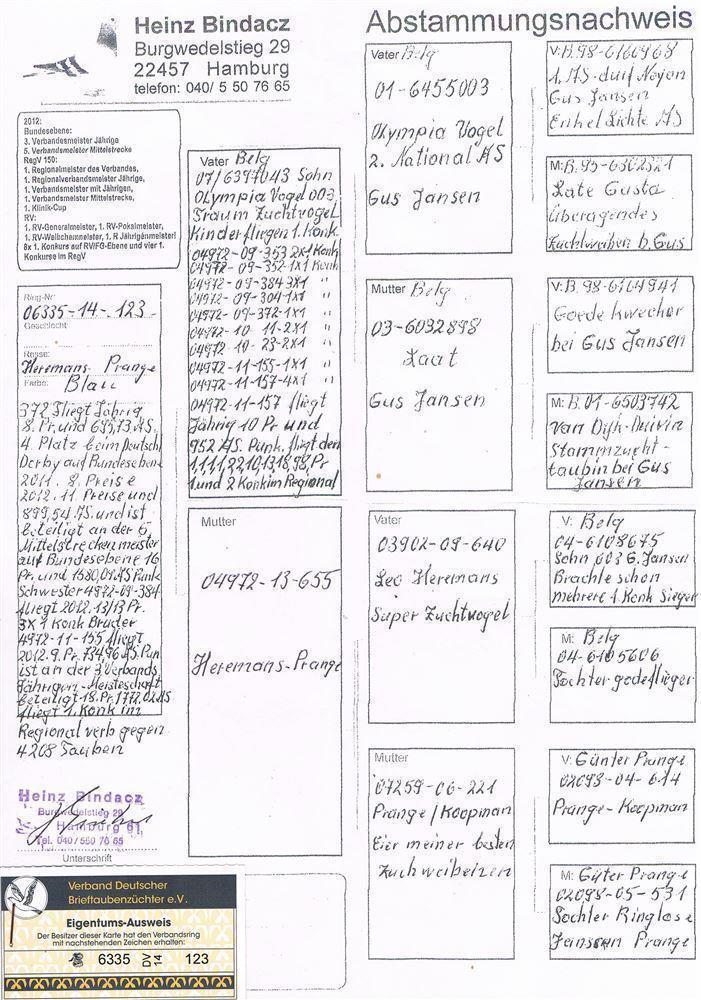 Heinz Bindacz
Burgwedelstieg 29
22457 Hamburg
telefon: 040/ 5 50 76 65
Abstammungsnachweis
2012:
Bundesebene:
3. Verbandesmeister Jährige
5. Verbandsmeister Mittelstrecke
RegV 150:
1. Regionalmeister des Verbandes,
1. Regionalverbandsmeister Jährige,
1. Verbandsmeister mit Jährigen,
1. Verbandsmeister Mittelstrecke,
1. Klinik-Cup
RV:
1. RV-Generalmeister, 1. RV-Pokalmeister,
1. RV-Weibchenmeister, 1. R Jährigenmeister!
8x 1. Konkurs auf RV/FG-Ebene und vier 1.
Konkurse im RegV
Ring-Nr
06335-14-123
Geschlecht
Rasse:
Heremans-Prange
Farbe: Blau
372 fliegt Jährig
8. Pr. und 695,13 AS.
4. Platz beim Deutsch
Derby auf Bundeseben
2011. 8. Preise
2012. 11 Preise und
899,54 AS. und ist
beteiligt an der 5
Mittelstreckenmeister
auf Bundesebene 16
Pr. und 1580,09 AS Punk
Schwester 4972-09-384
fliegt 2012. 13/13 Pr.
3X 1 Konk Bruder
4972-11-155 fliegt
2012. 9. Pr. 734,96 AS. Pun
ist an der 3 Verbands
Jährigen-Meisteschaft
beteiligt-18. Pr. 1772,02 AS
fliegt 1. Konk im
Regional verb gegen
4208 Tauben
Heinz Bindacz
Burgwedelstieg 29
Hamburg 61
Tel. 040/550 76 65
Unterschrift
Verband Deutscher
Brieftaubenzüchter e.V.
Eigentums-Ausweis
Der Besitzer dieser Karte hat den Verbandsring
mit nachstehenden Zeichen erhalten:
6335 DV 14 123
Vater Belg
07/6397043 Sohn
Olympia Vogel 003
Traum Zuchtvogel
Kinder fliegen 1. Konk.
04972-09-353 2x1 Konk
04972-09-352-1x1 Konk
04972-09-384 3x1 "
04972-09-304-1x1 "
04972-09-372-1x1 "
04972-10 11-2x1 "
04972 10-23-2x1 "
04972-11-155-1x1 "
04972-11-157-4x1 "
04972-11-157 fliegt
Jährig 10 Pr und
952 AS. Punk. fliegt den
1,1,1,1,2,2,10,13,18,98, Pr
1. und 2 Konk im Regional
Mutter
04972-13-655
Heremans-Prange
Vater Belg
01-6455003
Olympia Vogel
2. National AS
Gus Jansen
Mutter Belg
03-6032898
Zaat
Gus Jansen
Vater
03902-09-640
Leo Heremans
Super Zuchtvogel
Mutter
07259-06-221
Prange/Koopman
Eier meiner besten
Zuchweibetzen
V: B. 98-6160968
1. AS-duif Noyon
Gus Jansen
Enkel Lichte AS
M: B. 95-6302321
Late Gusta
überagendes
Zuchtweiben b. Gus
V: B. 98-6164941
Goede kweeker
bei Gus Jansen
M: B. 01-6503742
Van Dijk-Duivin
Stammzucht-
taubin bei Gus
Jansen
V: Belg
04-6108675
Sohn 003 G. Jansen
Brachte schon
mehrere 1 Konk Sieger
M: Belg
04-6105606
Tochter godeflieger
V: Günter Prange
02098-04-614
Prange-Koopman
M: Güter Prange
02098-05-531
Tochter Ringlose
Janssen Prange